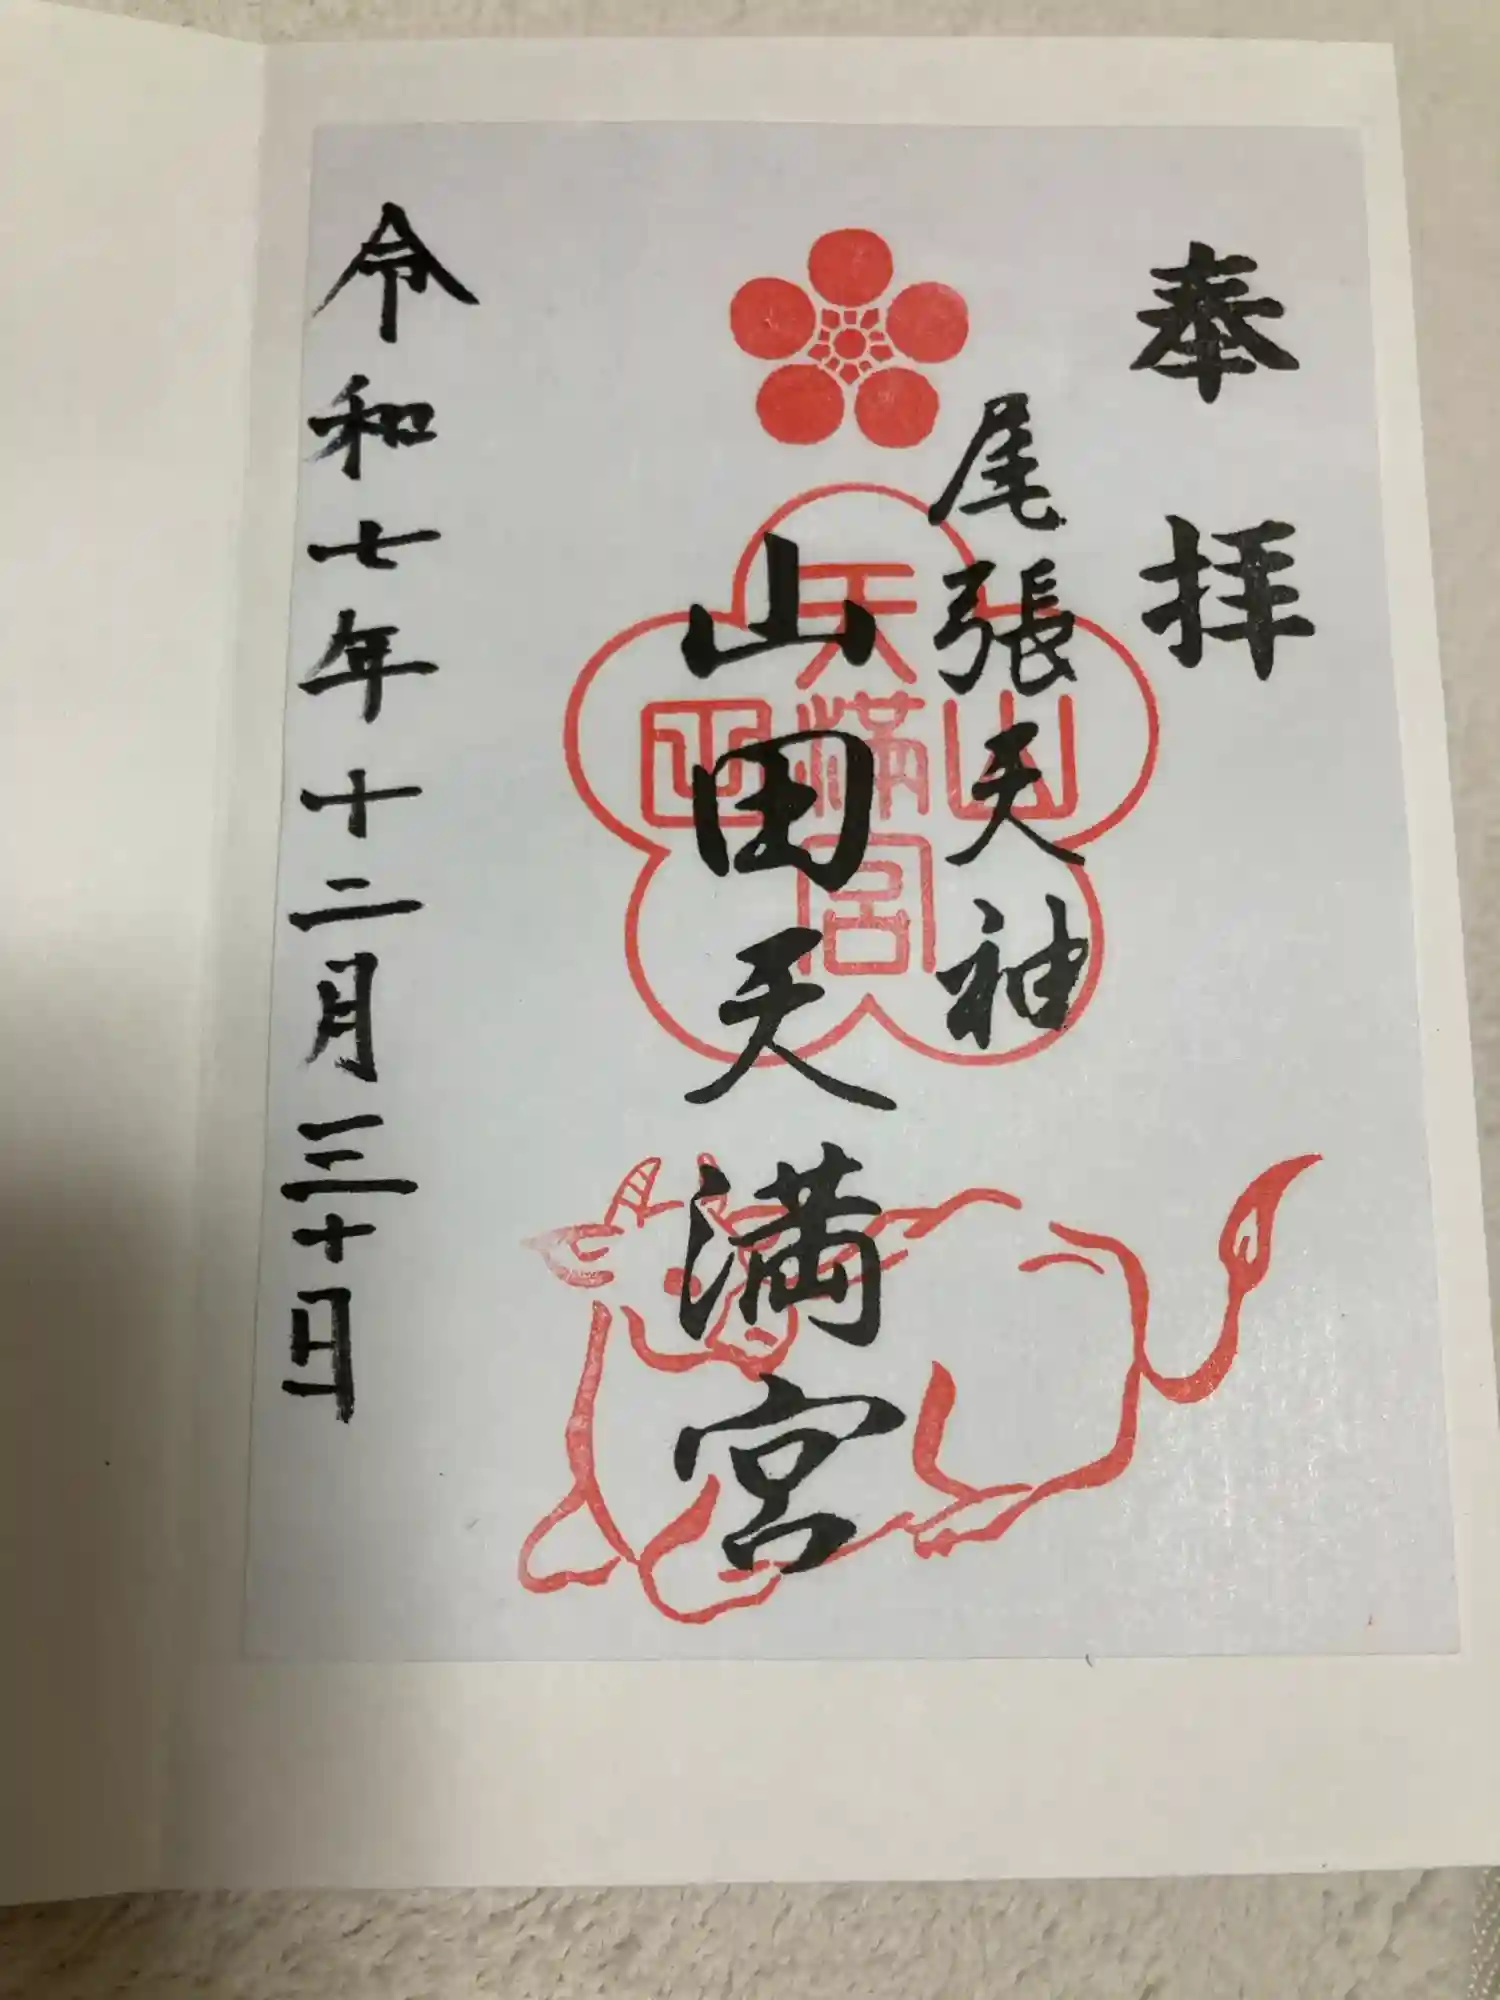 奉拝
尾張天神
山田天満宮
令和七年十二月三十日
山
天満宮